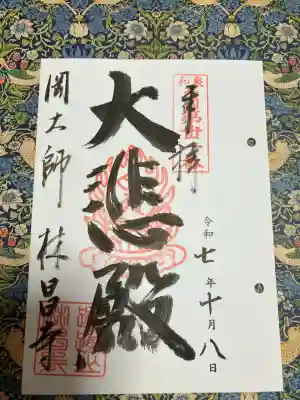 奉拝
令和七年十月八日
大悲殿
岡大師 林昌寺